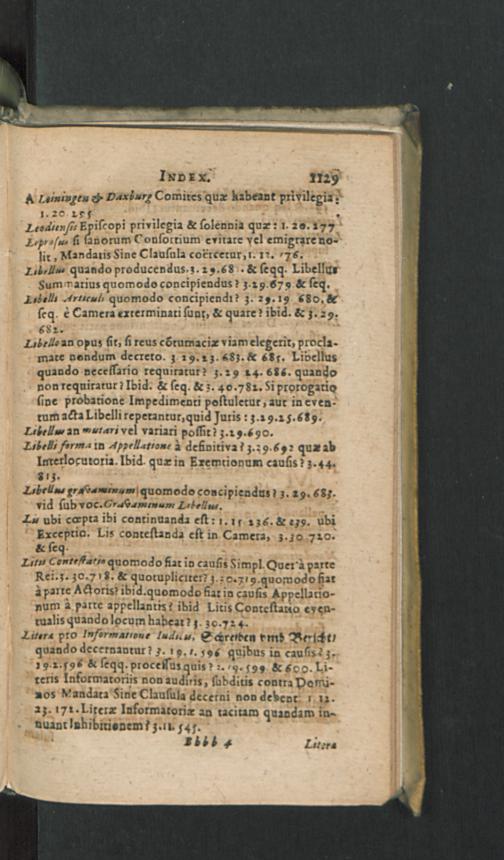 INDEX. 1129
A Leiningen & Daxburg Comites quæ habeant privilegia:
1.20.255
Leodiensis Episcopi privilegia & solennia quæ: 1.20.277
Leprosus si sanorum Consortium evitare vel emigrare no-
lit, Mandatis Sine Clausula coërcetur, 1.12.
Libellus quando producendus. 3.29.68 . & seqq. Libellus
Summarius quomodo concipiendus? 3.29.679 & seq.
Libelli Articuli quomodo concipiendi? 3.29.19 680. &
seq. è Camera exterminati sunt, & quare? ibid. & 3.29.
682.
Libello an opus sit, si reus cōtumaciæ viam elegerit, procla-
mate nondum decreto. 3 29.23.683. & 685. Libellus
quando necessario requiratur? 3.29 24.686. quando
non requiratur? Ibid. & seq. & 3.40.782. Si prorogatio
sine probatione Impedimenti postuletur, aut in even-
tum acta Libelli repetantur, quid Juris: 3.29.25.689.
Libellus an mutari vel variari possit? 3.29.690.
Libelli forma in Appellatione à definitiva? 3.29.692 quæ ab
Interlocutoria. Ibid. quæ in Exemtionum causis? 3.44.
813.
Libellus gravaminum quomodo concipiendus? 3.29.685.
vid sub voc. Gravaminum Libellus.
Lis ubi cœpta ibi continuanda est: 1.15 236. & 239. ubi
Exceptio. Lis contestanda est in Camera, 3.30 720.
& seq.
Litis Contestatio quomodo fiat in causis Simpl. Quer à parte
Rei. 3.30.718. & quotupliciter? 3.30.719. quomodo fiat
à parte Actoris? ibid. quomodo fiat in causis Appellatio-
num à parte appellantis? ibid Litis Contestatio even-
tualis quando locum habeat? 3.30.724.
Litera pro Informatione Iudicis, Schreiben vmb Bericht/
quando decernantur? 3.19.1.596 quibus in causis? 3.
19.2.596 & seqq. processus quis? 2.19.599 & 600. Li-
teris Informatoriis non auditis, subditis contra Domi-
nos Mandata Sine Clausula decerni non debent 1 12.
23.172. Literæ Informatoriæ an tacitam quandam in-
nuant Inhibitionem? 3.11.545.
Bbbb 4 Litera